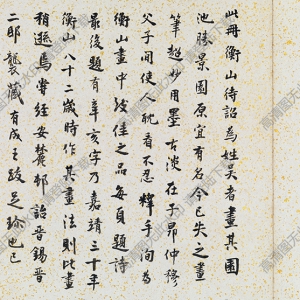 此冊衡山待詔為姓吴者畫其園
池勝景園原宜有名今已失之畫
筆超妙用墨古淡在子昂仲穆
父子間使人耽看不忍釋手間為
衡山畫中致佳之品每頁題詩
最後題有辛亥字乃嘉靖三十年
衡山八十二歲時作其畫法則此畫
稍遜焉嘗經安麓邨詒晉錫晉
二邸襲藏有成王跋足珍也已